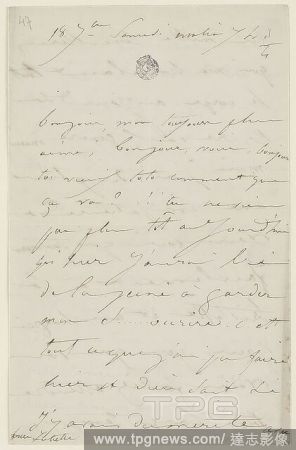 47
18 7bre Samedi matin 7h ½
bonjour, mon toujours plus
aimé, bonjour, vous, bonjour
toi vieux toto comment que
ça va? si tu ne viens
pas plus tôt aujourd'hui
qu'hier j'aurai bien
de la peine à garder
mon sourire. c'est
tout ce que j'ai pu faire
hier et Dieu sait si
j'y avais du mérite
TPG
www.tpgnews.com / 達志影像